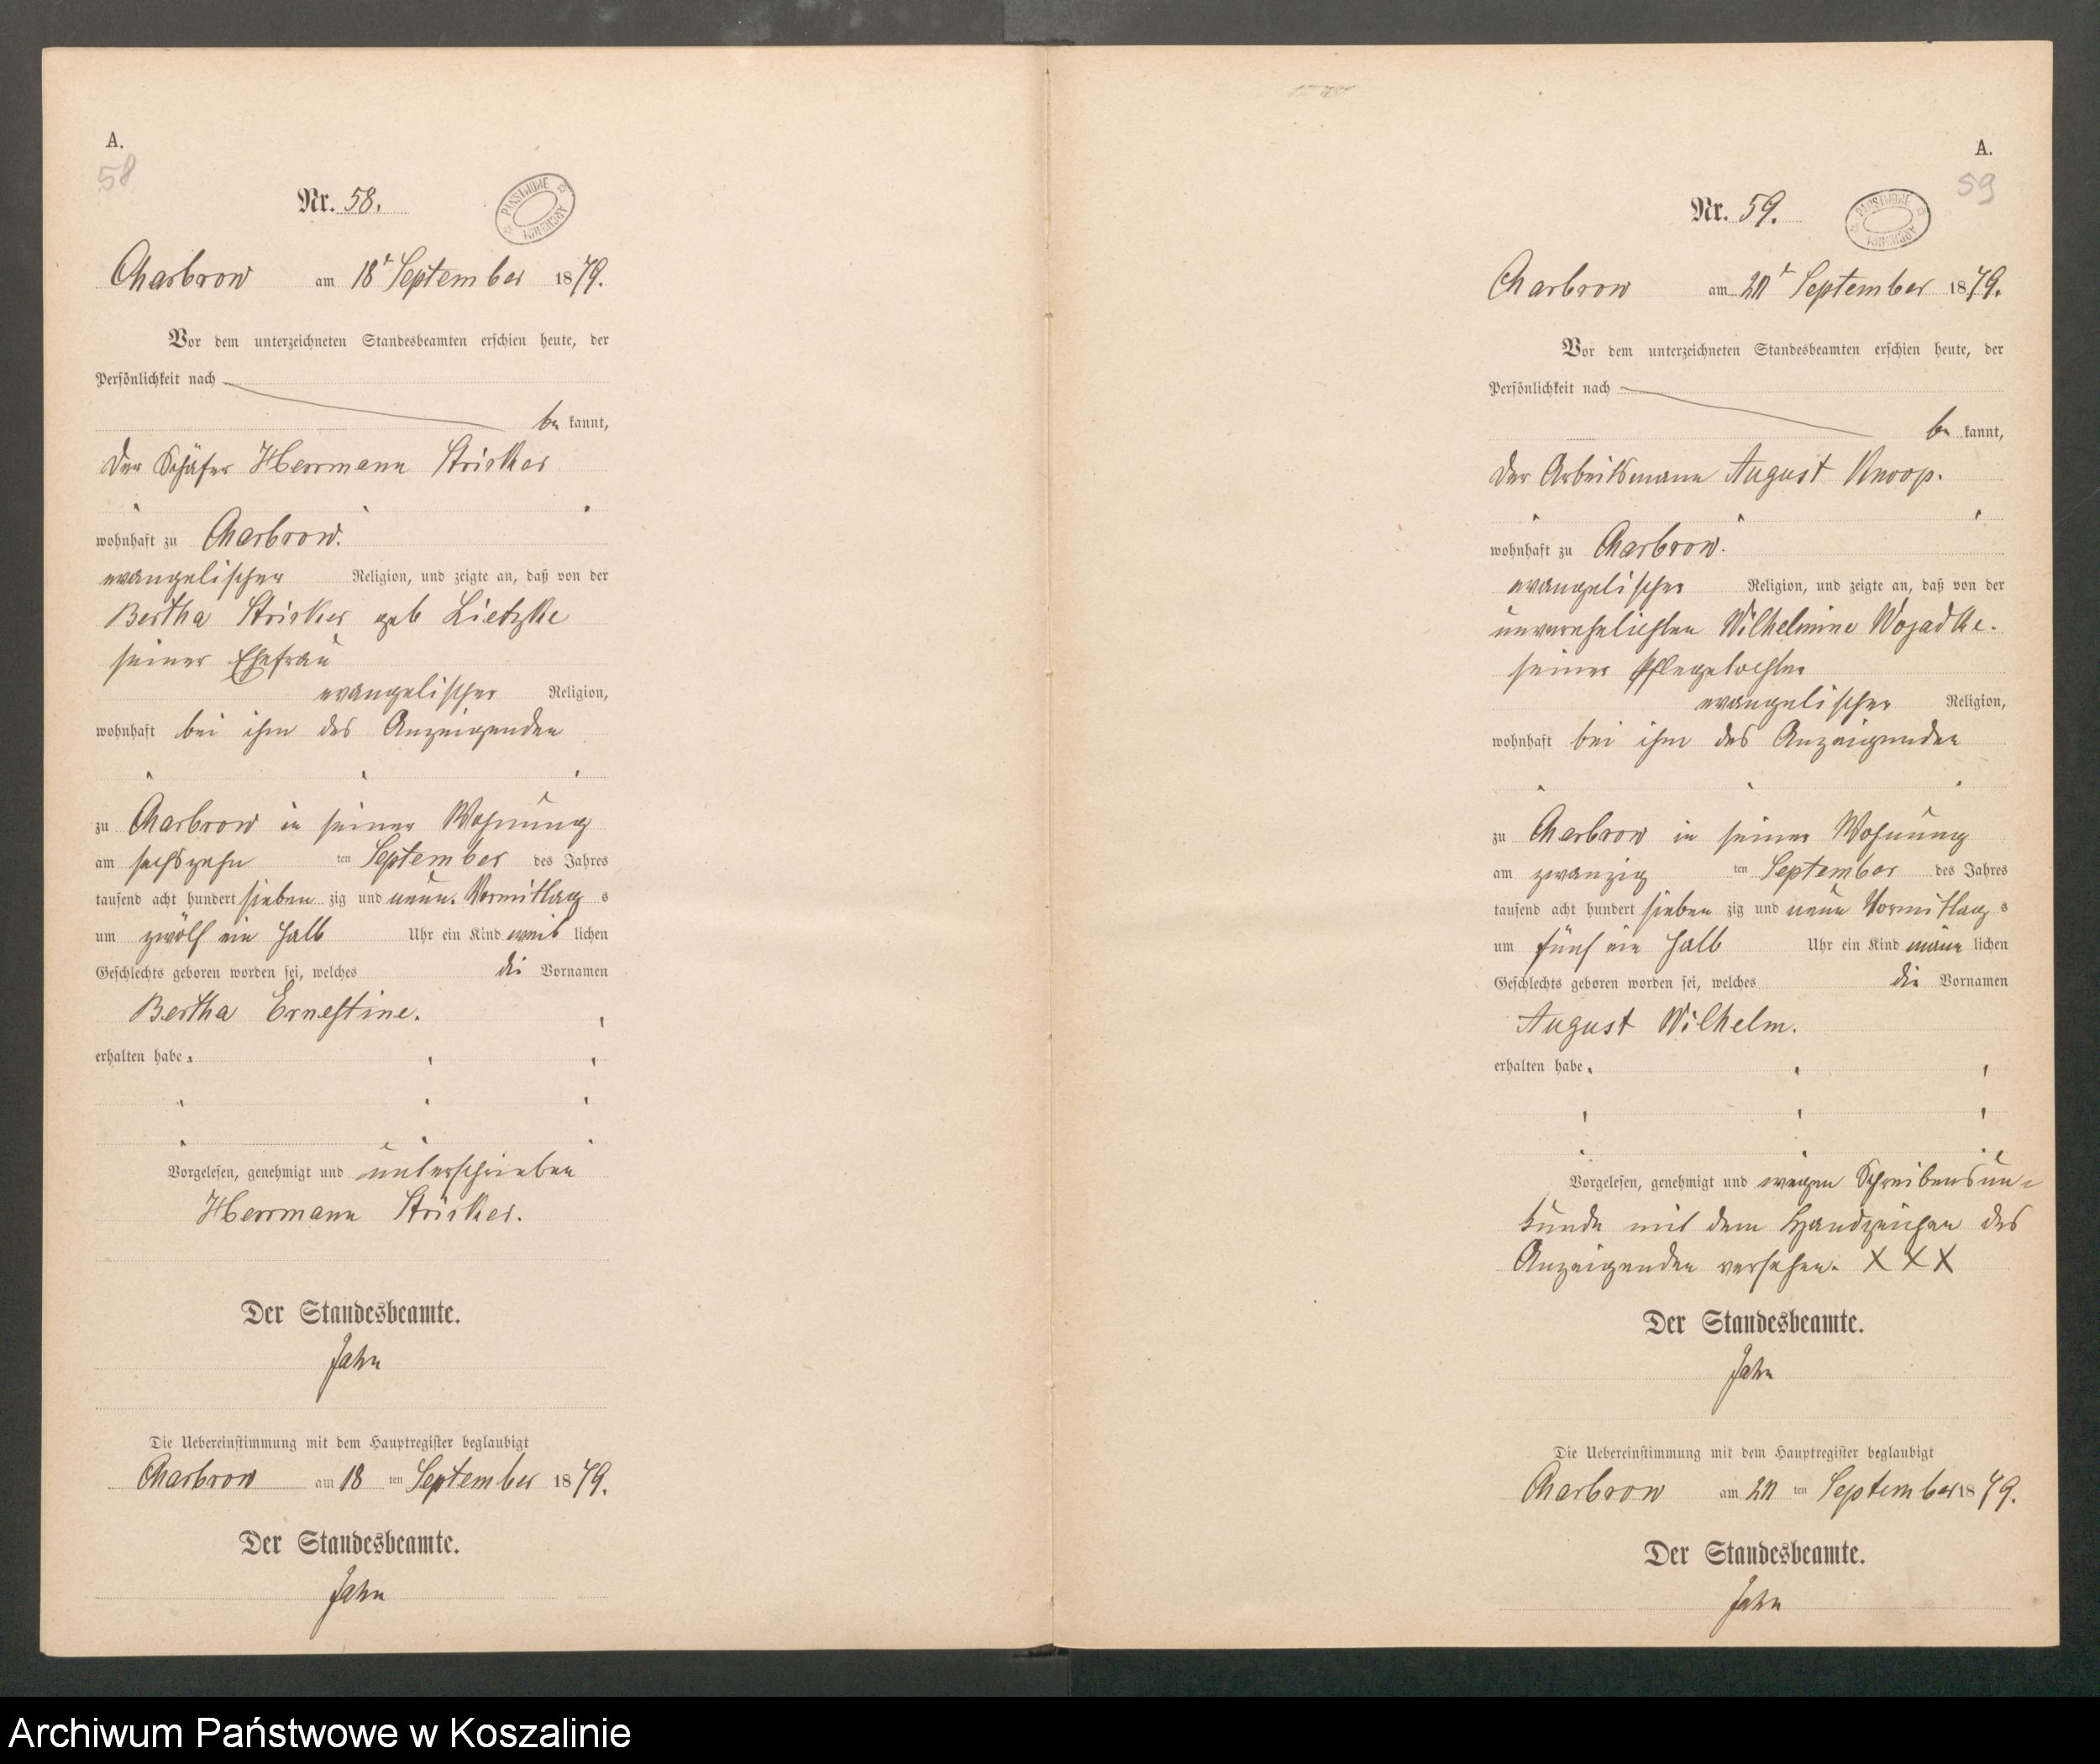 A.
58
Nr. 58.
PAŃSTWOWE ARCHIWUM
Charbrow am 18t September 1879.
Vor dem unterzeichneten Standesbeamten erschien heute, der
Persönlichkeit nach
be kannt,
der Schäfer Herrmann Stricker
wohnhaft zu Charbrow.
evangelischer Religion, und zeigte an, daß von der
Bertha Stricker geb Lietzke
seiner Ehefrau
evangelischer Religion,
wohnhaft bei ihm des Anzeigenden
zu Charbrow in seiner Wohnung
am sechszehn ten September des Jahres
tausend acht hundert sieben zig und neun. Vormittag s
um zwölf ein halb Uhr ein Kind weib lichen
Geschlechts geboren worden sei, welches die Vornamen
Bertha Ernestine.
erhalten habe
Vorgelesen, genehmigt und unterschrieben
Herrmann Stricker.
Der Standesbeamte.
Jahn
Die Uebereinstimmung mit dem Hauptregister beglaubigt
Charbrow am 18 ten September 1879.
Der Standesbeamte.
Jahn
A.
59
Nr. 59.
PAŃSTWOWE ARCHIWUM
Charbrow am 20t September 1879.
Vor dem unterzeichneten Standesbeamten erschien heute, der
Persönlichkeit nach
be kannt,
der Arbeitsmann August Knoop.
wohnhaft zu Charbrow.
evangelischer Religion, und zeigte an, daß von der
unverehelichten Wilhelmine Wojadke.
seiner Pflegetochter
evangelischer Religion,
wohnhaft bei ihm des Anzeigenden
zu Charbrow in seiner Wohnung
am zwanzig ten September des Jahres
tausend acht hundert sieben zig und neun Vormittag s
um fünf ein halb Uhr ein Kind männ lichen
Geschlechts geboren worden sei, welches die Vornamen
August Wilhelm.
erhalten habe
Vorgelesen, genehmigt und wegen Schreibensun-
kunde mit dem Handzeichen des
Anzeigenden versehen. X X X
Der Standesbeamte.
Jahn
Die Uebereinstimmung mit dem Hauptregister beglaubigt
Charbrow am 20 ten September 1879.
Der Standesbeamte.
Jahn
Archiwum Państwowe w Koszalinie